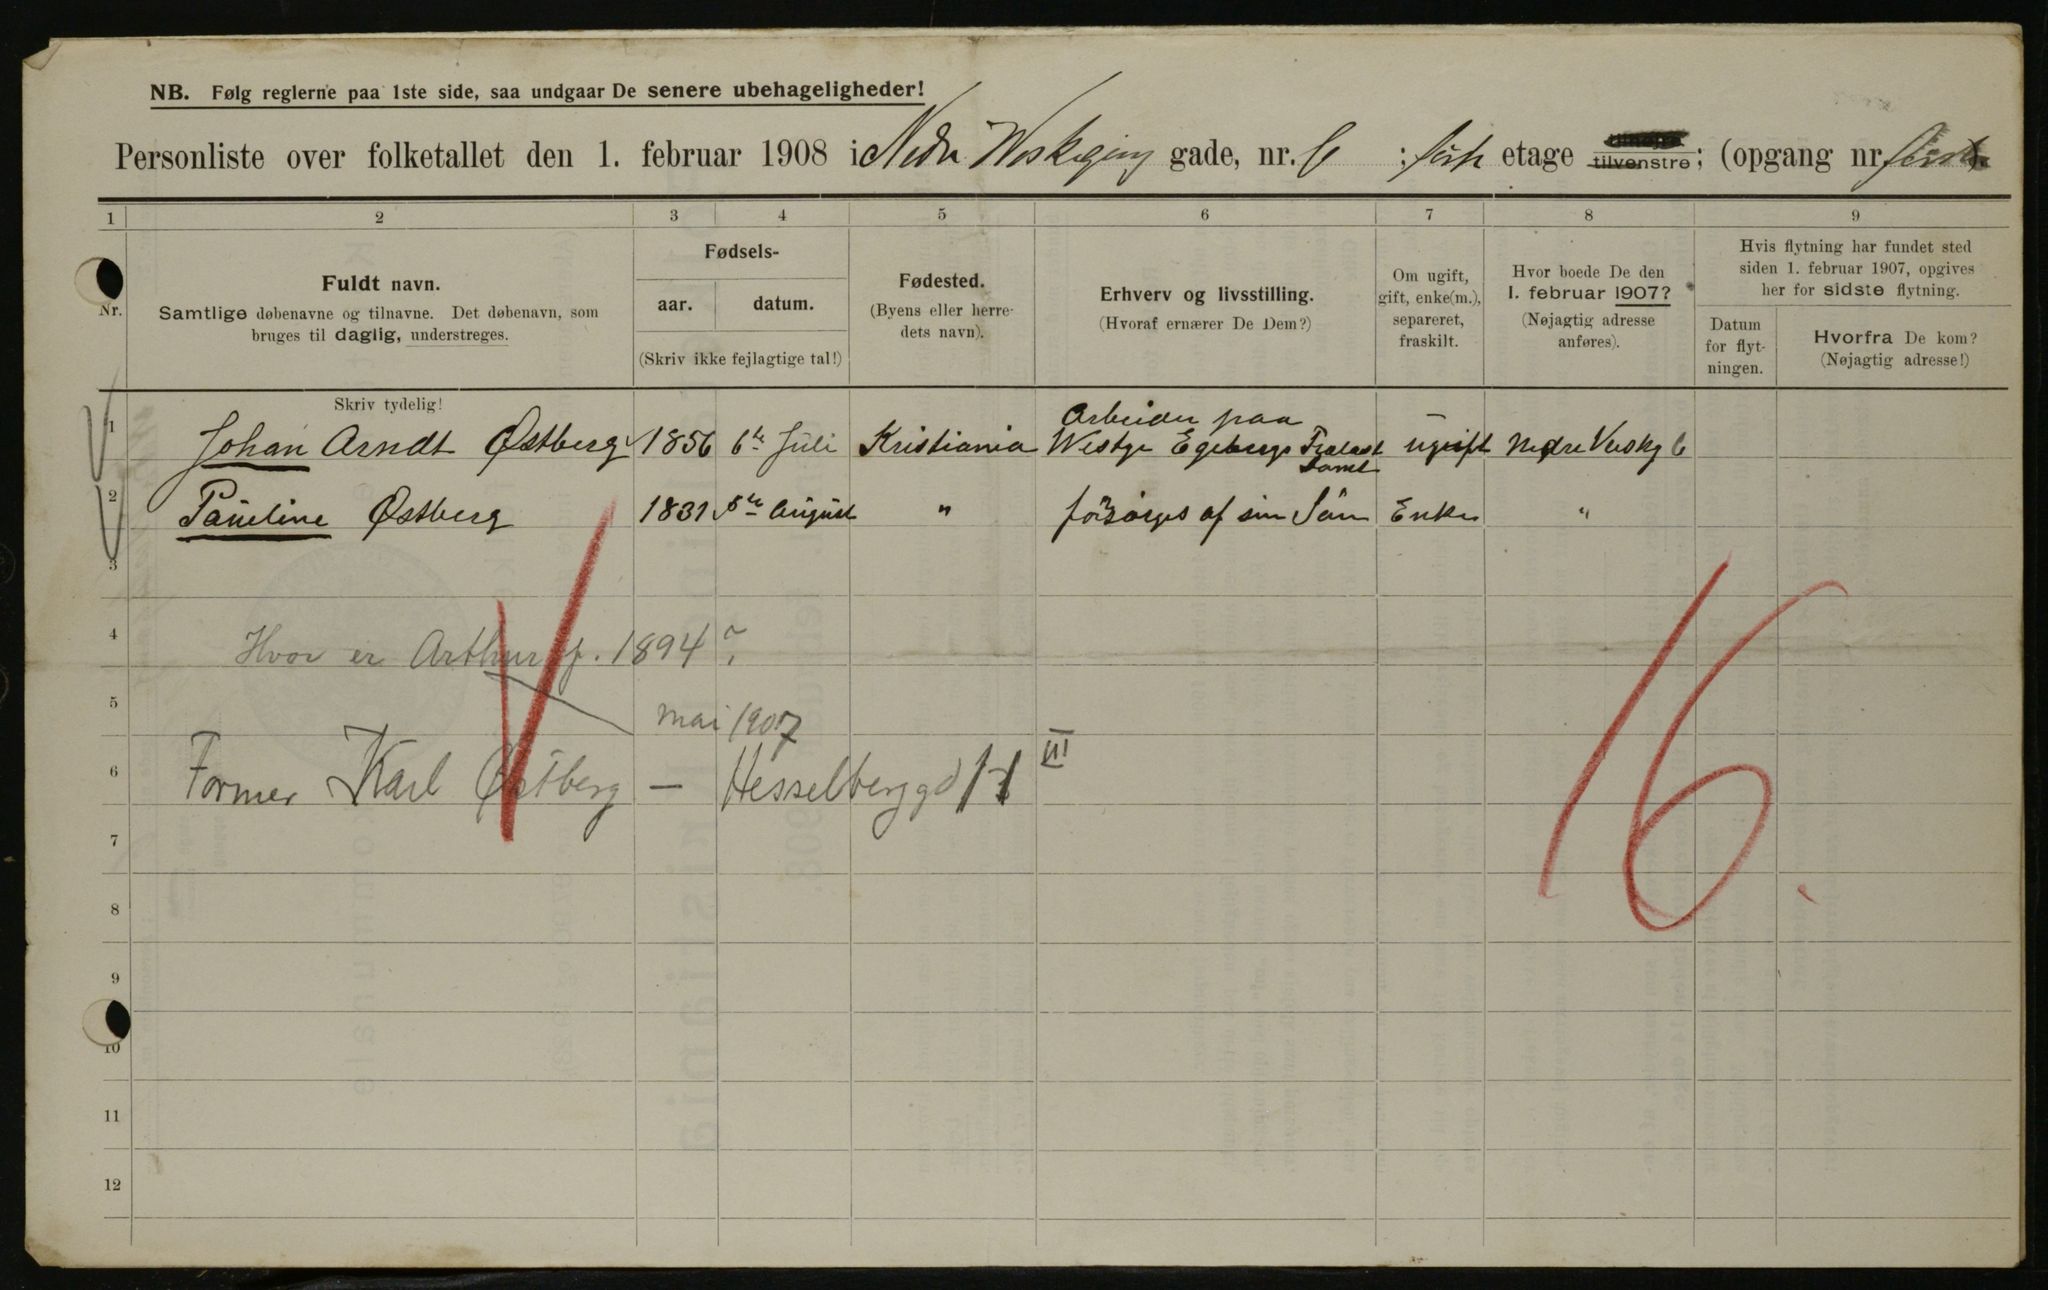 NB. Følg reglerne paa 1ste side, saa undgaar De senere ubehageligheder!
Personliste over folketallet den 1. februar 1908 i Nedre gade, nr. 6 ; etage tilvenstre; (opgang nr.
1 2 3 4 5 6 7 8 9
Nr.
Fuldt navn.
Samtlige døbenavne og tilnavne. Det døbenavn, som
bruges til daglig, understreges.
Fødsels-
aar. datum.
(Skriv ikke fejlagtige tal!)
Fødested.
(Byens eller herre-
dets navn).
Erhverv og livsstilling.
(Hvoraf ernærer De Dem?)
Om ugift,
gift, enke(m.),
separeret,
fraskilt.
Hvor boede De den
1. februar 1907?
(Nøjagtig adresse
anføres).
Hvis flytning har fundet sted
siden 1. februar 1907, opgives
her for sidste flytning.
Datum
for flyt-
ningen.
Hvorfra De kom?
(Nøjagtig adresse!)
Skriv tydelig!
Arbeider paa
1 Johan Arndt Østberg 1856 6te Juli Kristiania Westye Egebergs ugift Nedre 6
2 Paueline Østberg 1831 5te August " forsørges af sin Sön Enke "
3
4 Hvor er Arthur f. 1894?
5 mai 1907
6 Former Karl Østberg — Hesselberggd III
16.
7
8
9
10
11
12